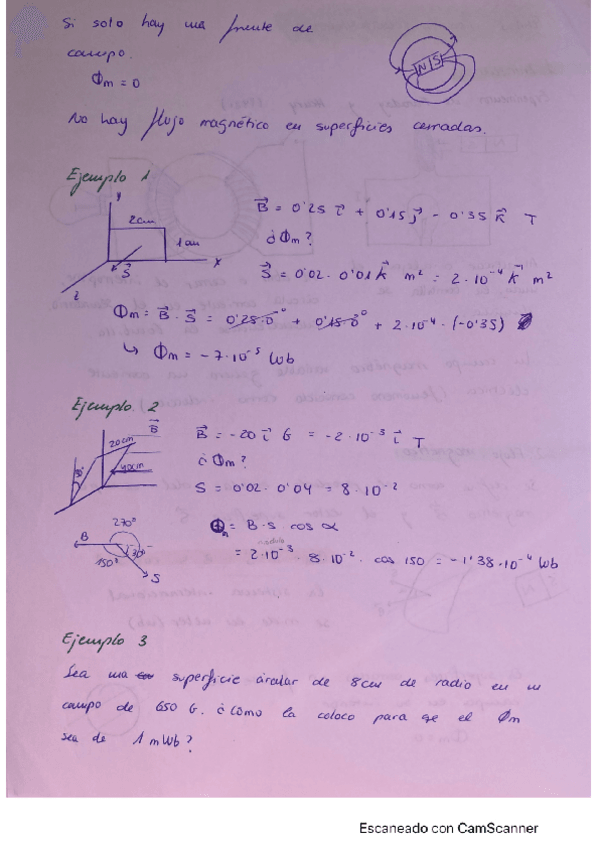 Si solo hay una fuente de
campo.
Φm = 0
N S
No hay flujo magnético en superficies cerradas.
Ejemplo 1
y
2cm
1cm
S⃗
x
z
B⃗ = 0'25 i⃗ + 0'15 j⃗ - 0'35 k⃗ T
¿Φm?
S⃗ = 0'02 · 0'01 k⃗ m² = 2·10⁻⁴ k⃗ m²
Φm = B⃗ · S⃗ = 0'25·0 + 0'15·0 + 2·10⁻⁴ · (-0'35)
↳ Φm = -7·10⁻⁵ Wb
Ejemplo 2
B⃗
20cm
40cm
B⃗ = -20 i⃗ G = -2·10⁻³ i⃗ T
¿Φm?
S = 0'02 · 0'04 = 8·10⁻²
Φm = B·S cos α
= 2·10⁻³ 8·10⁻² · cos 150 = -1'38·10⁻⁴ Wb
270º
B
30º
150º
S
Ejemplo 3
Sea una superficie circular de 8cm de radio en un
campo de 650 G. ¿Cómo la coloco para qe el Φm
sea de 1 mWb?
Escaneado con CamScanner